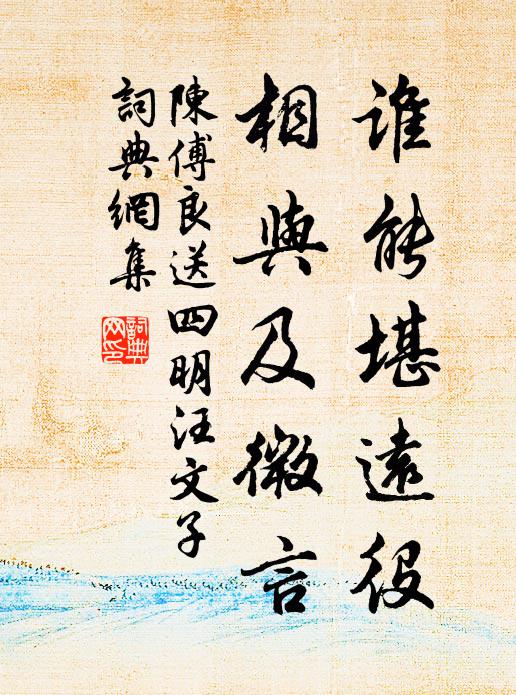 誰能堪遠役
相與及微言
陳傅良送四明汪文子
詞典網集
詞典網印